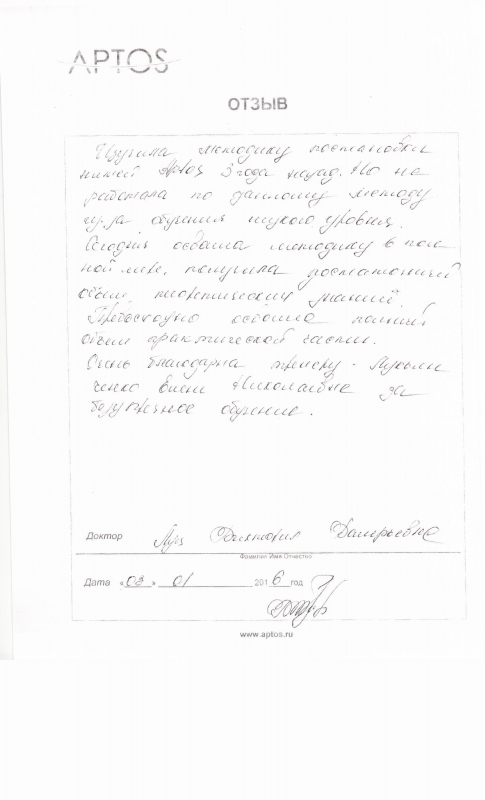 APTOS
ОТЗЫВ
Изучила методику постановки
нитей Aptos 3 года назад. Но не
работала по данному методу
из-за обучения низкого уровня.
Сегодня освоила методику в пол
ной мере, получила достаточный
объем теоретических знаний.
Превосходно освоила полный
объем практической части.
Очень благодарна тренеру - Лукьян
ченко Николаевне за
безупречное обучение.
Доктор Виктория Валерьевна
Фамилия Имя Отчество
Дата «03» 01 2016 год
www.aptos.ru